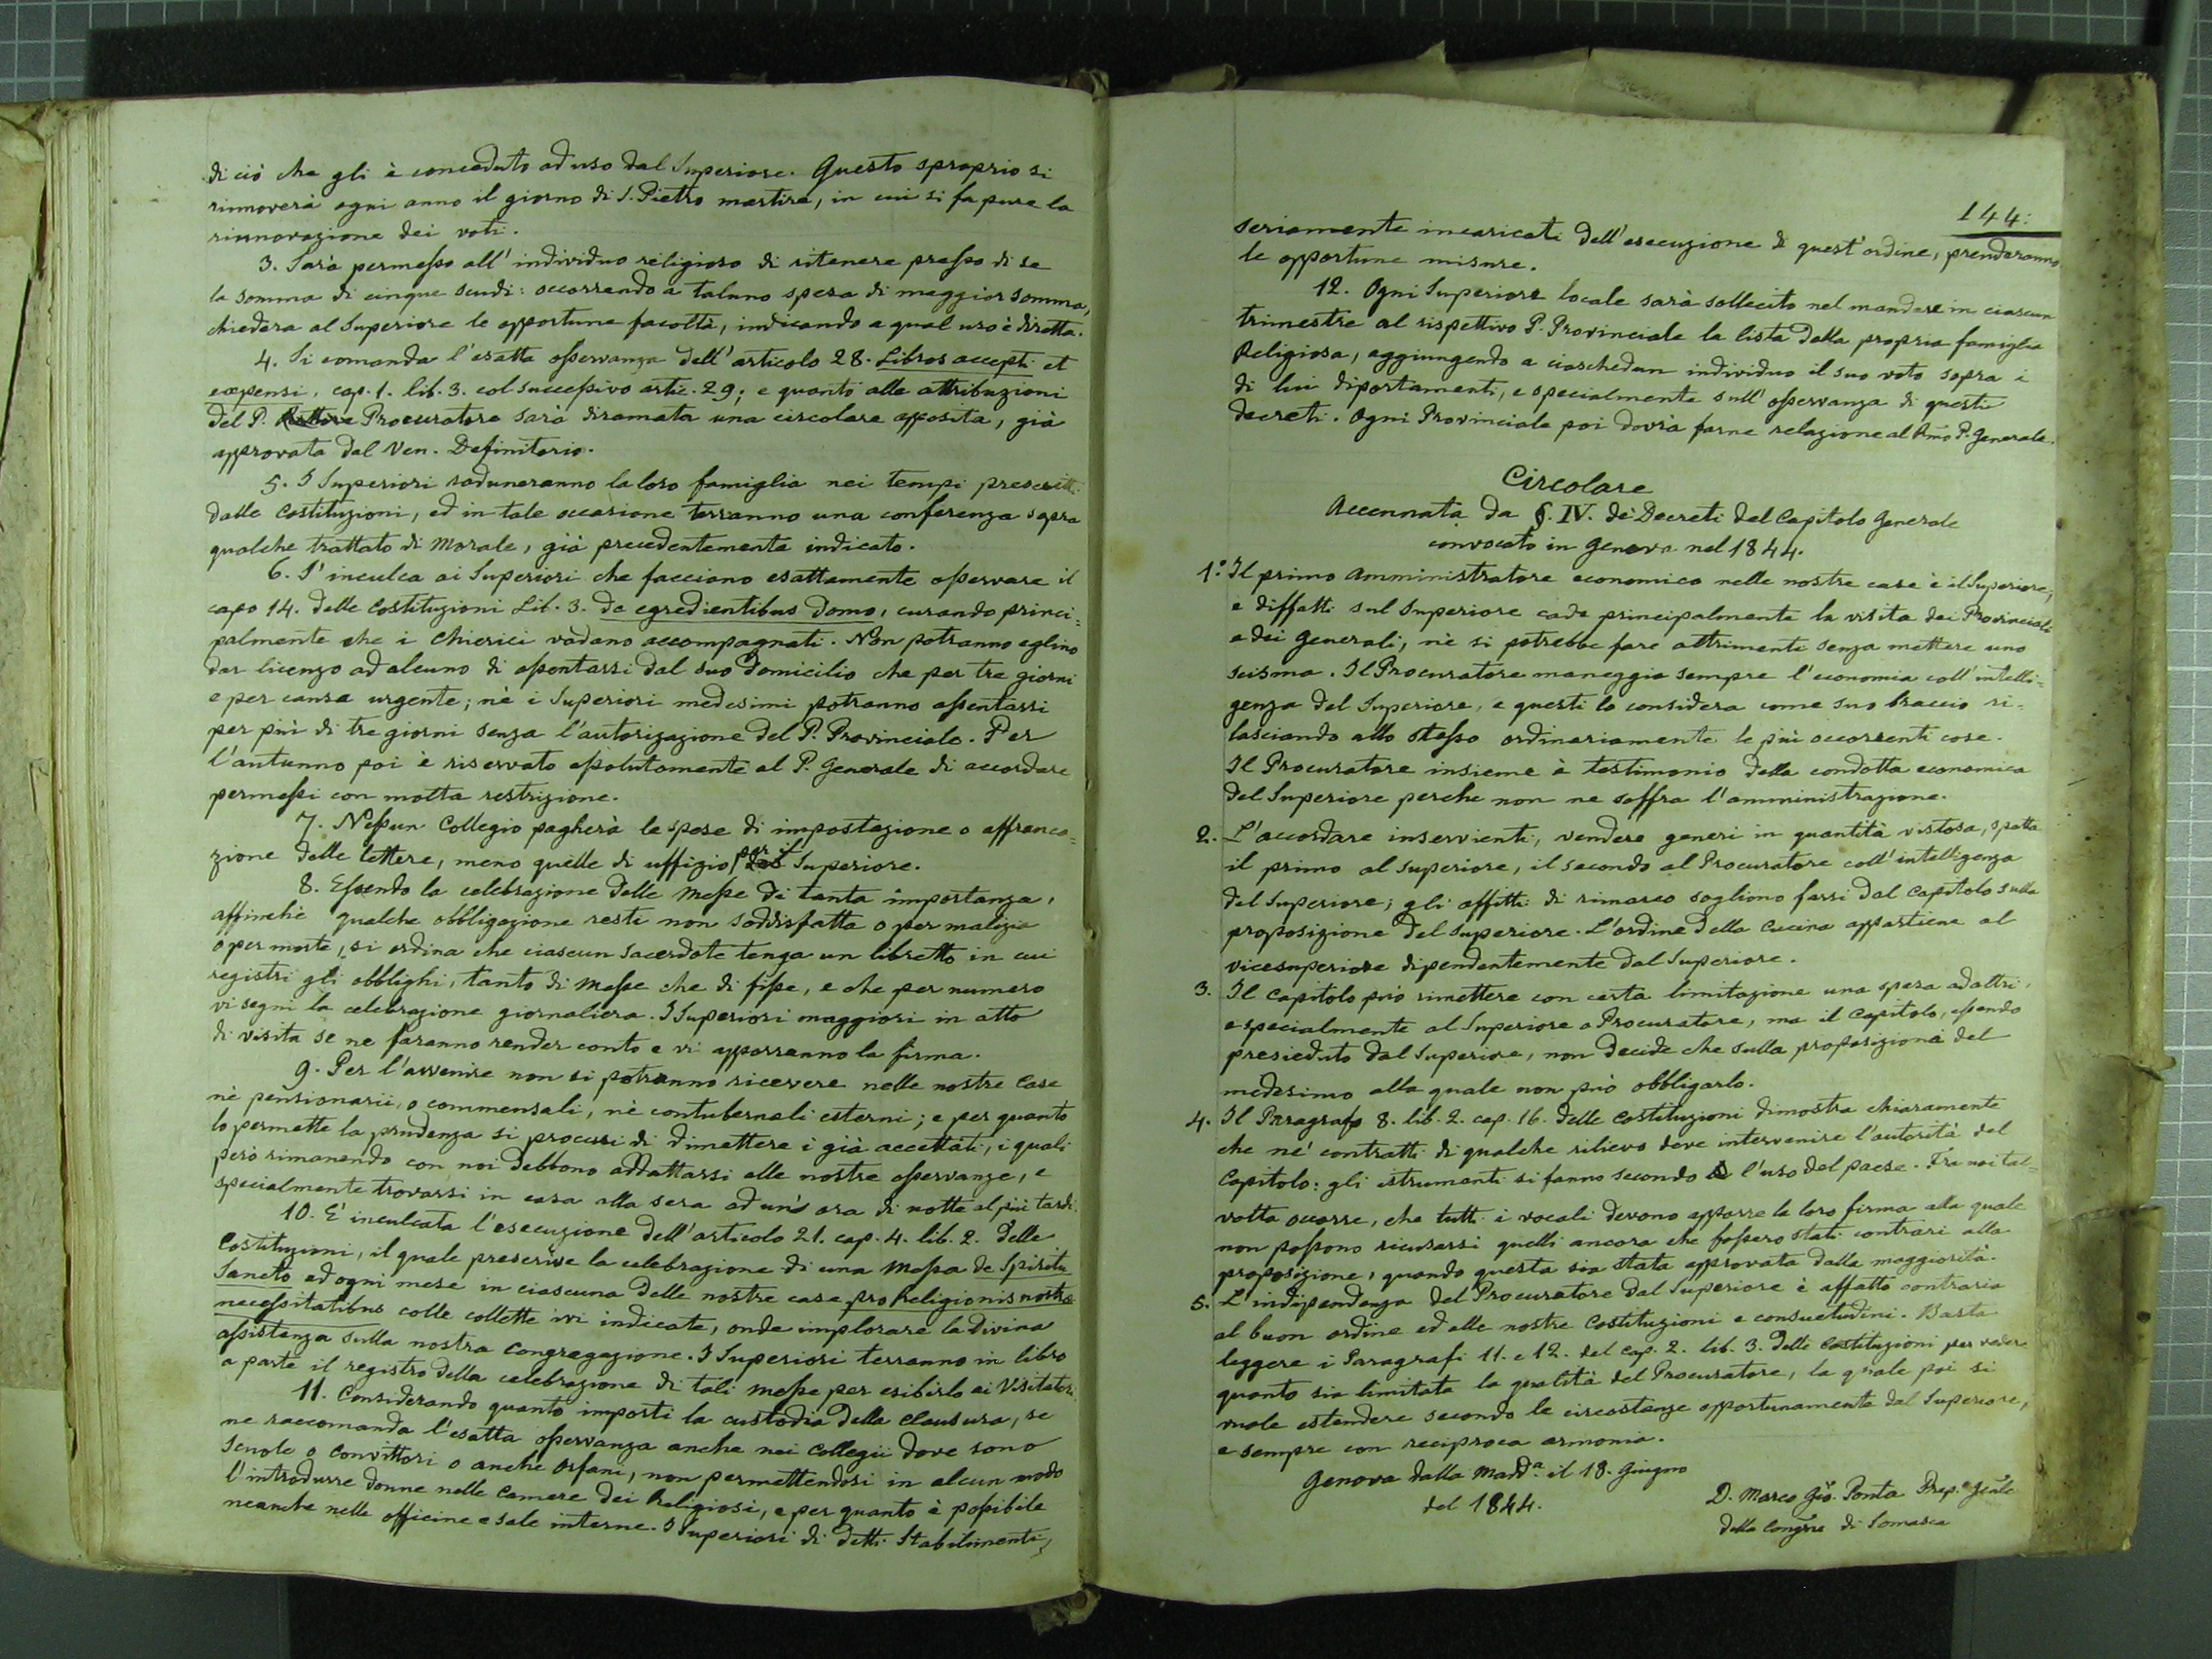 di ciò che gli è conceduto ad uso dal Superiore. Questo sproprio si
rinnoverà ogni anno il giorno di S. Pietro martire, in cui si fa pure la
rinnovazione dei voti.
3. Sarà permesso all' individuo religioso di ritenere presso di se
la somma di cinque scudi: occorrendo a taluno spesa di maggior somma,
chiederà al Superiore le opportune facoltà, indicando a qual uso è diretta.
4. Si comanda l'esatta osservanza dell' articolo 28. Libros accepti et
expensi, cap. 1. lib. 3. col successivo artic. 29; e quanto alle attribuzioni
del P. Rettore Procuratore sarà diramata una circolare apposita, già
approvata dal Ven. Definitorio.
5. I Superiori raduneranno la loro famiglia nei tempi prescritti
dalle Costituzioni, ed in tale occasione terranno una conferenza sopra
qualche trattato di Morale, già precedentemente indicato.
6. S' inculca ai Superiori che facciano esattamente osservare il
capo 14. delle Costituzioni Lib. 3. de egredientibus domo, curando princi=
palmente che i Chierici vadano accompagnati. Non potranno eglino
dar licenza ad alcuno di assentarsi dal suo domicilio che per tre giorni
e per causa urgente; nè i Superiori medesimi potranno assentarsi
per più di tre giorni senza l'autorizazione del P. Provinciale. Per
l'autunno poi è riservato assolutamente al P. Generale di accordare
permessi con molta restrizione.
7. Nessun Collegio pagherà le spese di impostazione o affranca=
zione delle lettere, meno quelle di uffizio per il Superiore.
8. Essendo la celebrazione delle Messe di tanta importanza,
affinchè qualche obbligazione resti non soddisfatta o per malizia
o per morte, si ordina che ciascun Sacerdote tenga un libretto in cui
registri gli obblighi, tanto di Messe che di fisse, e che per numero
vi segni la celebrazione giornaliera. I Superiori maggiori in atto
di visita se ne faranno render conto e vi apporranno la firma.
9. Per l'avvenire non si potranno ricevere nelle nostre Case
nè pensionarii, o commensali, nè contubernali esterni; e per quanto
lo permette la prudenza si procuri di dimettere i già accettati, i quali
però rimanendo con noi debbono addattarsi alle nostre osservanze, e
specialmente trovarsi in casa alla sera ad un' ora di notte al più tardi.
10. E' inculcata l'esecuzione dell' articolo 21. cap. 4. lib. 2. delle
Costituzioni, il quale prescrive la celebrazione di una Messa de Spiritu
Sancto ed ogni mese in ciascuna delle nostre case pro Religionis nostrae
necessitatibus colle collette ivi indicate, onde implorare la divina
assistenza sulla nostra Congregazione. I Superiori terranno in libro
a parte il registro della celebrazione di tali Messe per esibirlo ai Visitatori.
11. Considerando quanto importi la custodia della Clausura, se
ne raccomanda l'esatta osservanza anche nei Collegii dove sono
Scuole o Convittori o anche Orfani, non permettendosi in alcun modo
l'introdurre donne nelle Camere dei Religiosi, e per quanto è possibile
neanche nelle officine e sale interne. I Superiori di detti Stabilimenti,
144.
seriamente incaricati dell' esecuzione di quest' ordine, prenderanno
le opportune misure.
12. Ogni Superiore locale sarà sollecito nel mandare in ciascun
trimestre al rispettivo P. Provinciale la lista della propria famiglia
Religiosa, aggiungendo a ciaschedun individuo il suo voto sopra i
di lui diportamenti, e specialmente sull' osservanza di questi
decreti. Ogni Provinciale poi dovrà farne relazione al Rmo P. Generale.
Circolare
Accennata da §. IV. de' Decreti del Capitolo Generale
convocato in Genova nel 1844.
1.° Il primo Amministratore economico nelle nostre case è il Superiore;
e diffatti sul Superiore cade principalmente la visita dei Provinciali
e dei Generali, nè si potrebbe fare altrimenti senza mettere uno
scisma. Il Procuratore maneggia sempre l'economia coll' intelli=
genza del Superiore, e questi lo considera come suo braccio ri=
lasciando allo stesso ordinariamente le più occorrenti cose.
Il Procuratore insieme è testimonio della condotta economica
del Superiore perche non ne soffra l'amministrazione.
2. L'accordare inservienti, vendere generi in quantità vistosa, spetta
il primo al Superiore, il secondo al Procuratore coll' intelligenza
del Superiore; gli affitti di rimarco sogliono farsi dal Capitolo sulla
proposizione del Superiore. L'ordine della Cucina appartiene al
vicesuperiore dipendentemente dal Superiore.
3. Il Capitolo può rimettere con certa limitazione una spesa ad altri,
e specialmente al Superiore o Procuratore, ma il Capitolo, essendo
presieduto dal Superiore, non decide che sulla proposizione del
medesimo alla quale non può obbligarlo.
4. Il Paragrafo 8. lib. 2. cap. 16. delle Costituzioni dimostra chiaramente
che ne' contratti di qualche rilievo deve intervenire l'autorità del
Capitolo: gli istrumenti si fanno secondo l'uso del paese. Fra noi tal=
volta occorre, che tutti i vocali devono apporre la loro firma alla quale
non possono ricusarsi quelli ancora che fossero stati contrari alla
proposizione, quando questa sia stata approvata dalla maggiorità.
5. L'indipendenza del Procuratore dal Superiore è affatto contraria
al buon ordine ed alle nostre Costituzioni e consuetudini. Basta
leggere i Paragrafi 11. e 12. del cap. 2. lib. 3. delle Costituzioni per vedere
quanto sia limitata la qualità del Procuratore, la quale poi si
vuole estendere secondo le circostanze opportunamente dal Superiore,
e sempre con reciproca armonia.
Genova dalla Madd.a il 18. Giugno
del 1844.
D. Marco Gio. Ponta Prep.o Genle
della Congne di Somasca